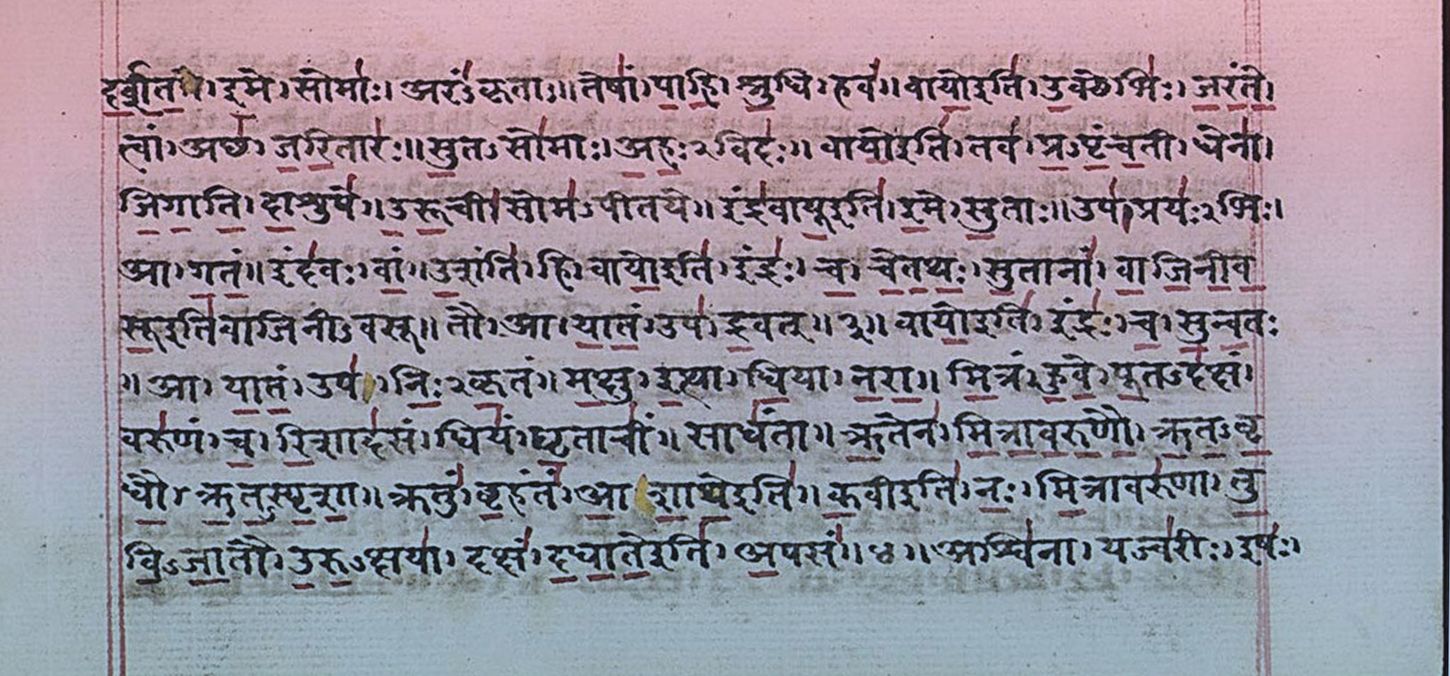 दर्शत। इमे। सोमाः। अरंऽकृताः॥ तेषां। पाहि। श्रुधि। हवं॥ वायोइति। उक्थेभिः। जरंते।
त्वां। अच्छ। जरितारः॥ सुतऽसोमाः। अहःऽविदः॥ वायोइति। तव। प्रऽपृंचती। धेना।
जिगाति। दाशुषे॥ उरूची। सोमऽपीतये॥ इंद्रवायूइति। इमे। सुताः॥ उप। प्रयःऽभिः।
आ। गतं॥ इंदवः। वां॥ उशंति। हि। वायोइति। इंद्रः। च। चेतथः। सुतानां। वाजिनीव
सूइतिवाजिनीऽवसू॥ तौ। आ। यातं। उप। द्रवत्॥ ३॥ वायोइति। इंद्रः। च। सुन्वतः
। आ। यातं। उप। निःऽकृतं॥ मक्षु। इत्था। धिया। नरा॥ मित्रं। हुवे। पूतऽदक्षं
वरुणं। च। रिशादसं। धियं। घृताचीं। साधंता॥ ऋतेन। मित्रावरुणौ। ऋतऽवृ
धौ। ऋतऽस्पृशा॥ ऋतुं। बृहंतं। आशाथेइति॥ कवीइति। नः। मित्रावरुणा। तु
विऽजातौ। उरुऽक्षया। दक्षं। दधातेइति। अपसं॥ ४॥ अश्विना। यज्वरीः। इषः।